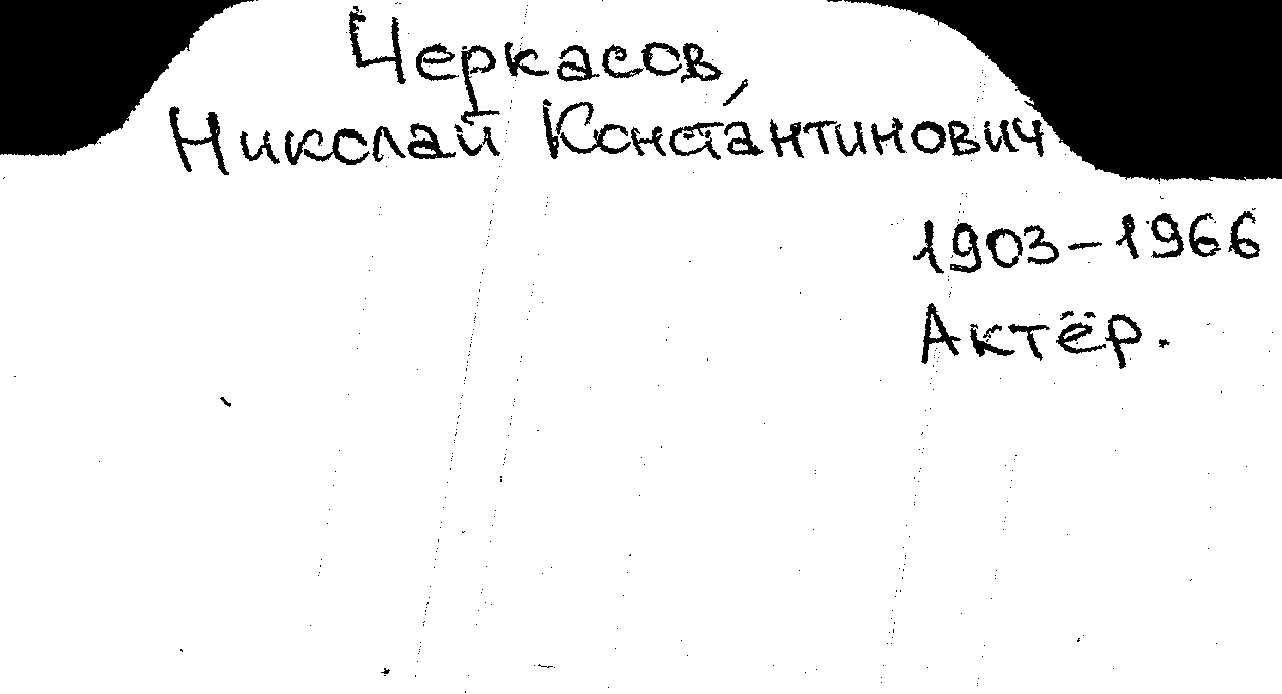 Черкасов,
Николай Константинович
1903-1966
Актёр.